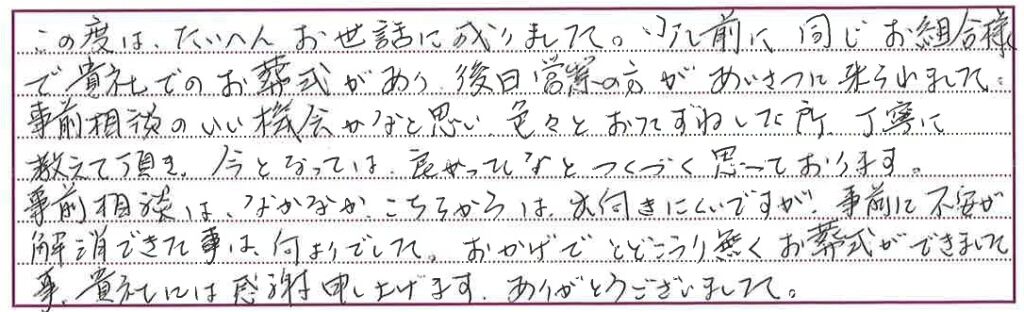 この度は、たいへんお世話に成りました。少し前に同じお組合様
で貴社でのお葬式があり、後日営業の方があいさつに来られました。
事前相談のいい機会かなと思い、色々とおたずねした所、丁寧に
教えて頂き、今となっては、良かったなとつくづく思っております。
事前相談は、なかなか、こちらからは、出向きにくいですが、事前に不安が
解消できた事は、何よりでした。おかげでとどこうり無くお葬式ができました
事、貴社には感謝申し上げます。ありがとうございました。